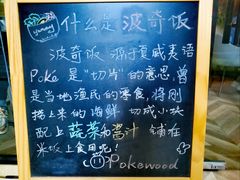 yummy
什么是波奇饭
波奇饭 源于夏威夷语
Poke 是"切片"的意思,曾
是当地渔民的零食,将刚
捞上来的海鲜 切成小块
配上蔬菜和酱汁 铺在
米饭上食用呢!
Pokewood